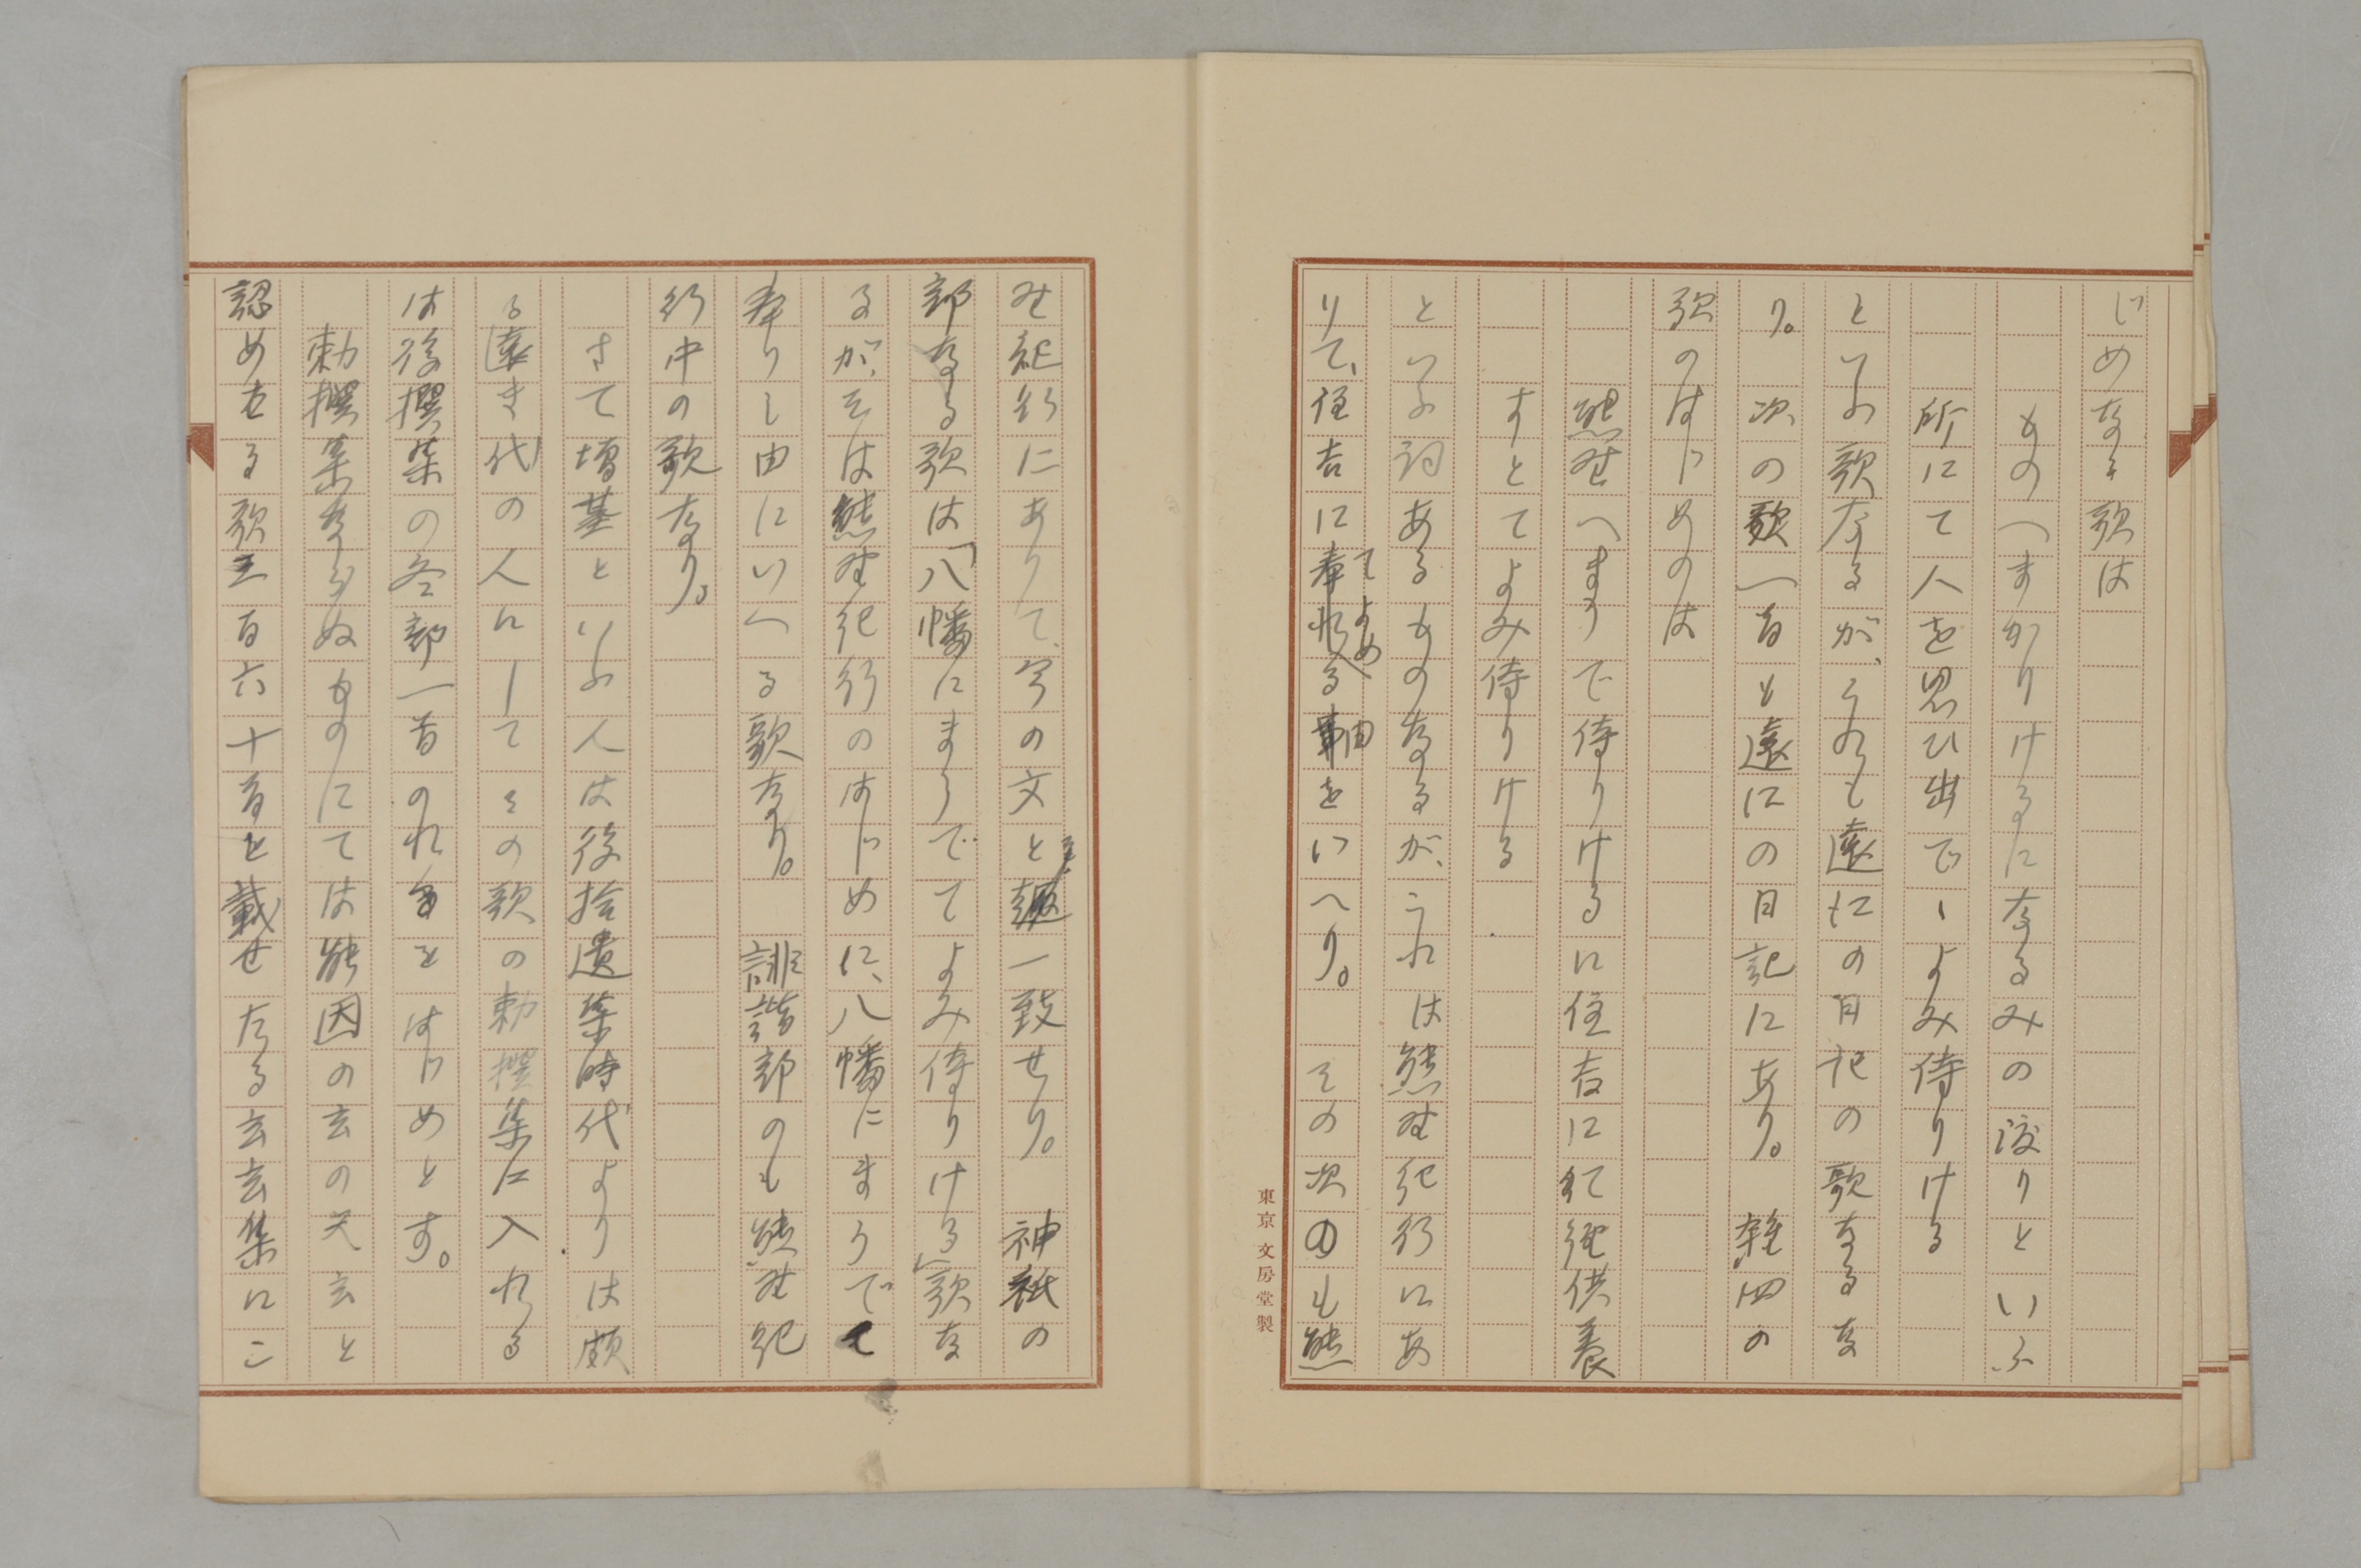 じめなる歌は
ものへまかりけるになるみの渡りといふ
所にて人を思ひ出でゝよみ侍りける
といふ歌なるが、これも遠江の日記の歌なるな
り。次の歌一首も遠江の日記にあり。 雑四の
歌のはじめのは
熊野へまうで侍りけるに住吉にて経供養
すとてよみ侍りける
といふ詞あるものなるが、これは熊野紀行にあ
りて、住吉に奉りてよめる歌をいへり。 その次のも熊
東京 文房堂製
野紀行にありて、今の文と趣一致せり。 神祇の
部なる歌は「八幡にまうでてよみ侍りける」歌な
るが、そは熊野紀行のはじめに、八幡にまうでて
奉りし由にいへる歌なり。 誹諧部のも熊野紀
行中の歌なり。
さて増基といふ人は後拾遺集時代よりは頗
る遠き代の人にしてその歌の勅撰集に入れる
は後撰集の冬部一首のれるをはじめとす。
勅撰集ならぬものにては能因の玄の玄と
認めたる歌百六十首を載せたる玄玄集にこ